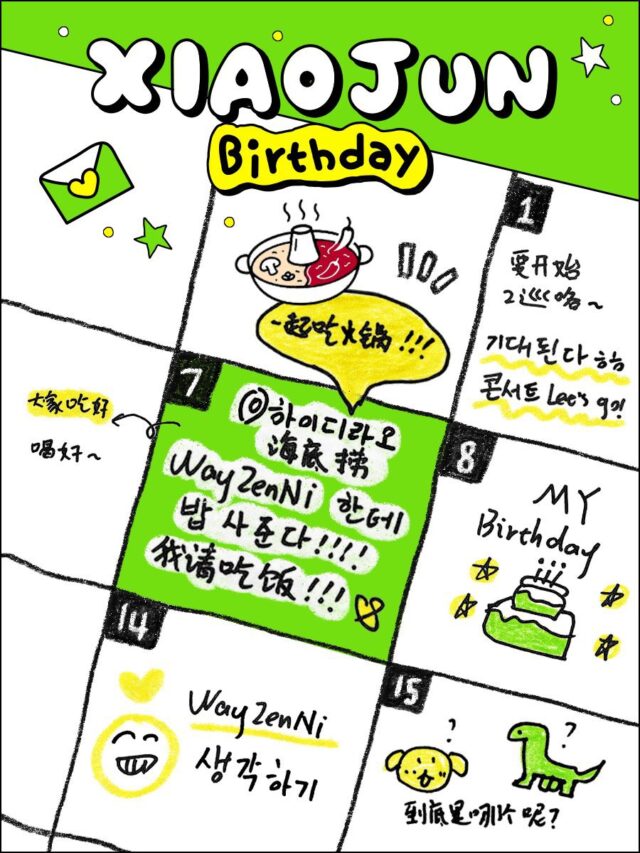 XIAOJUN
Birthday
1
要开始
2巡咯~
기대된다 하하
콘서트 Let's go!
一起吃火锅!!!
7
하이디라오
海底捞
WayZenNi 한테
밥 사준다!!!!
我请吃饭!!!
大家吃好
喝好~
8
MY
Birthday
14
WayZenNi
생각하기
15
? ?
到底是哪个呢?